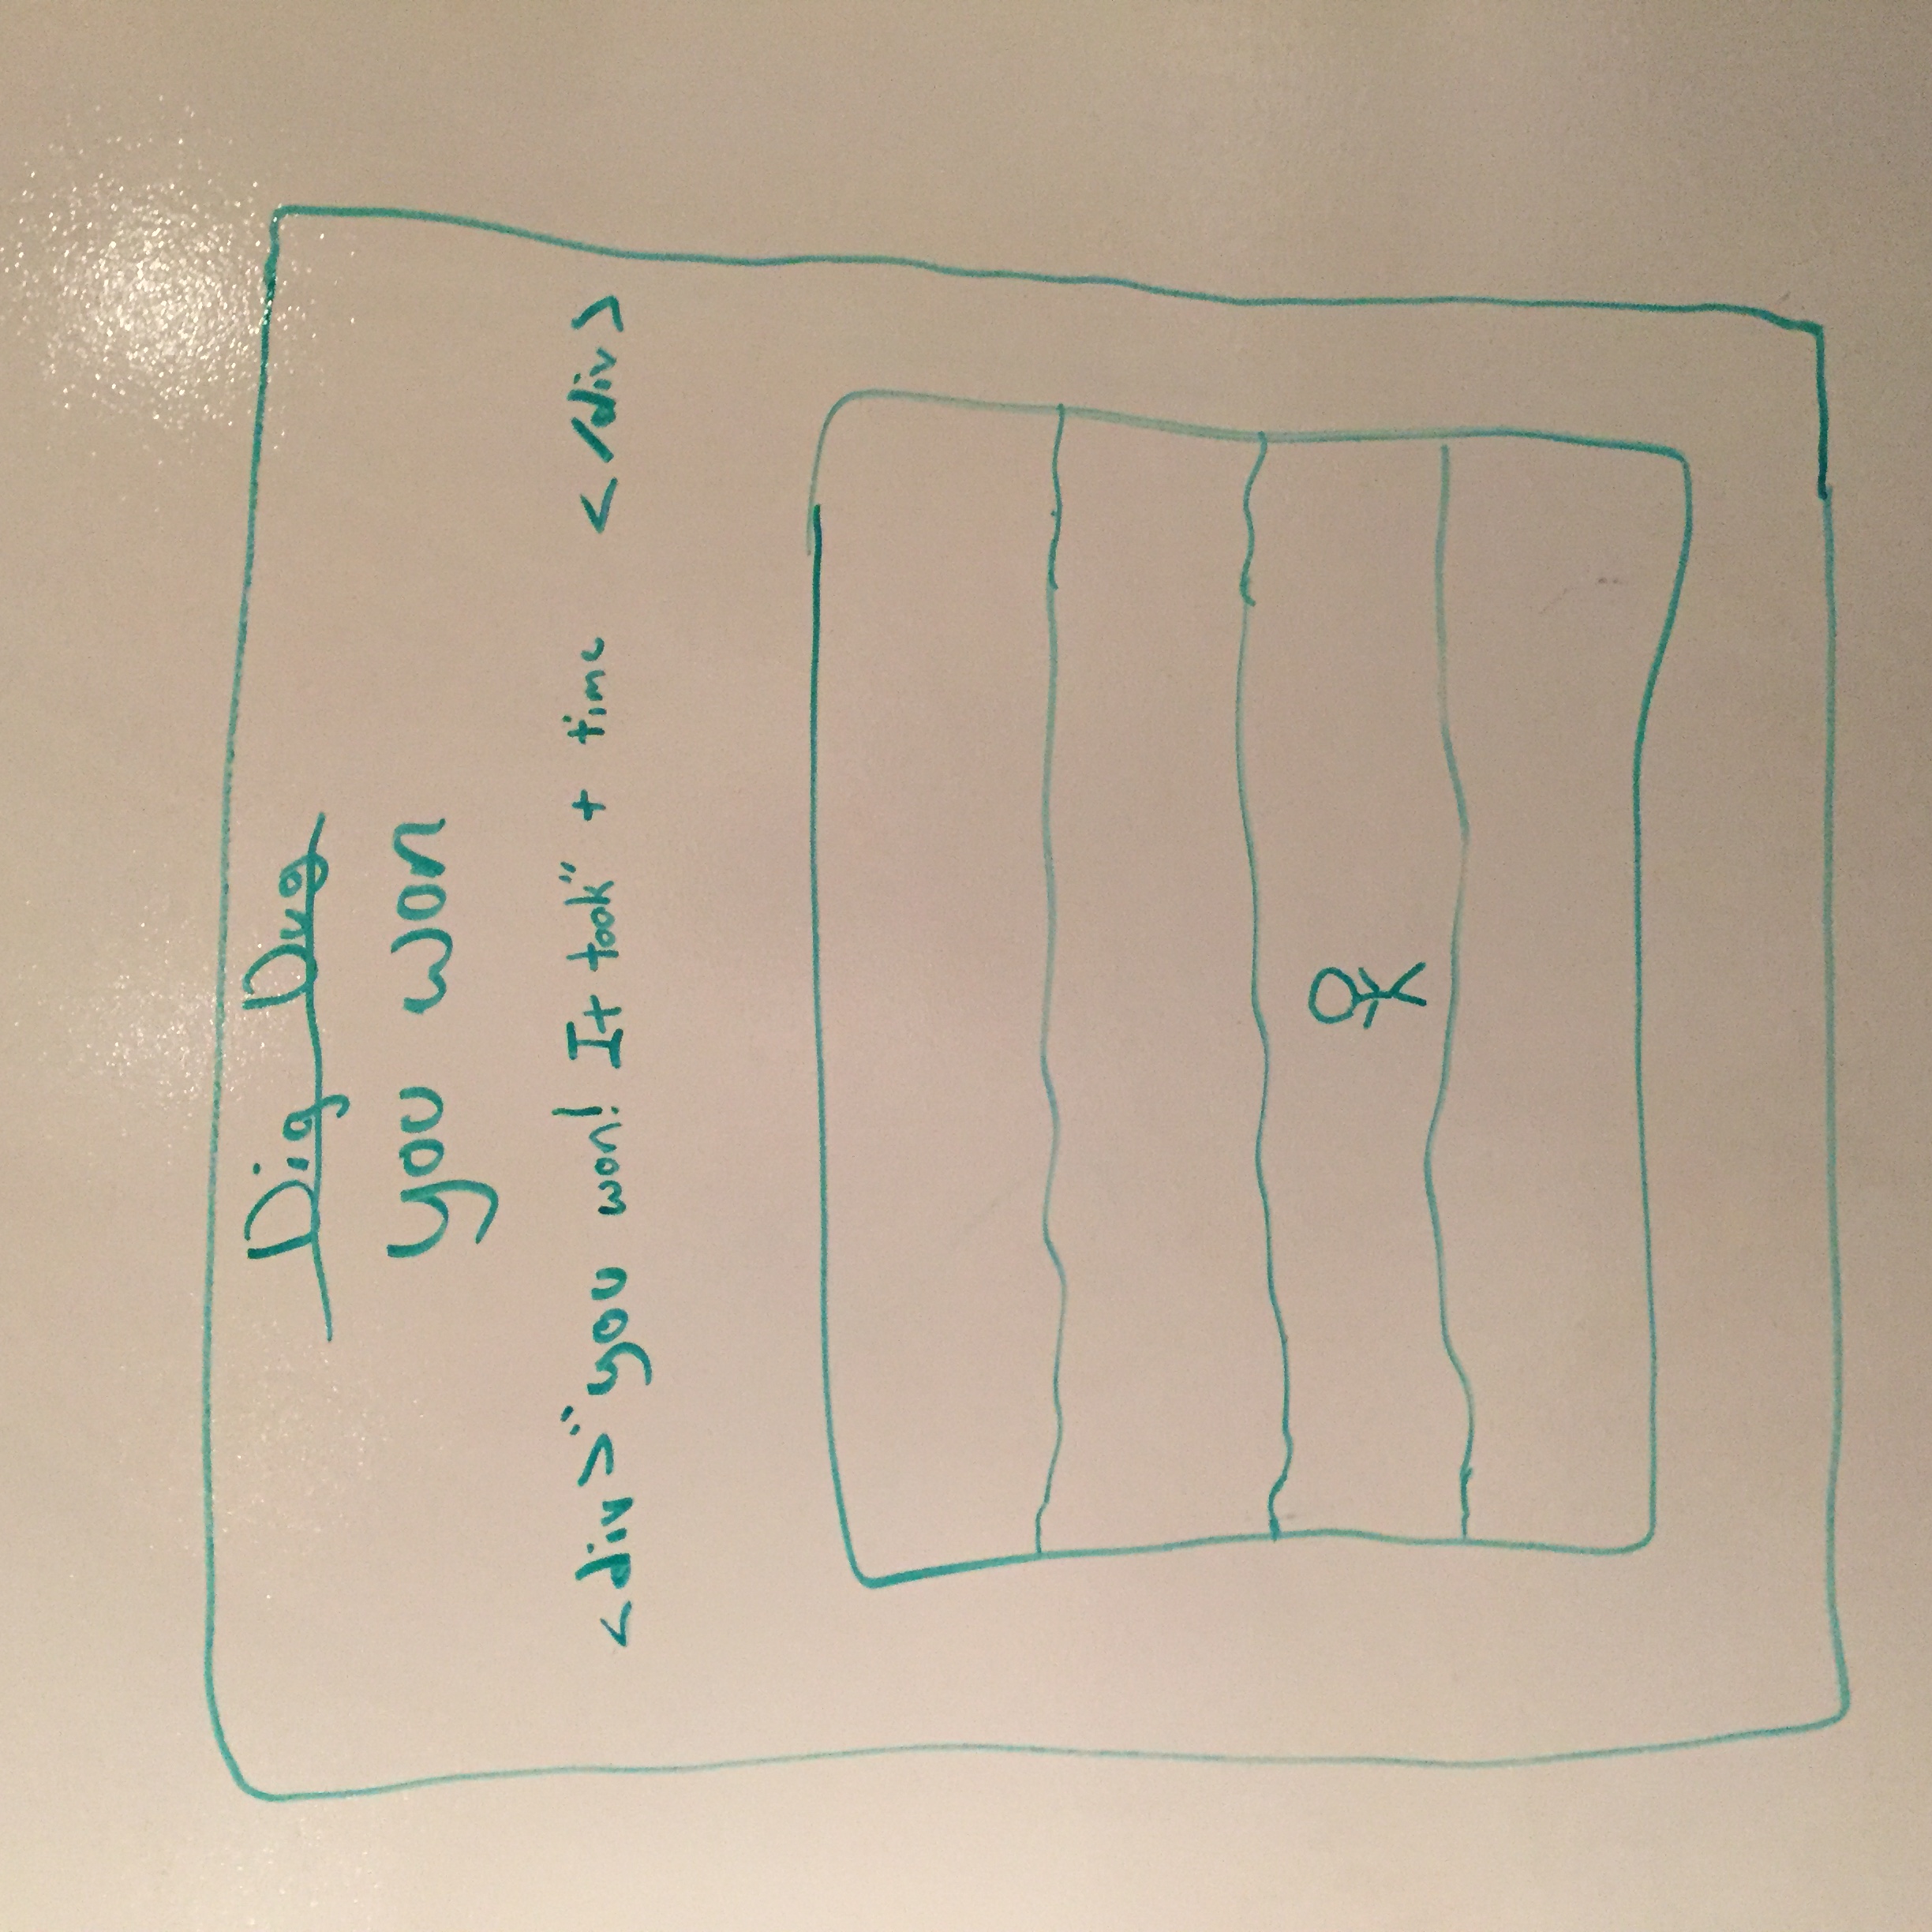 Dig Dug
you won
<div>"you won! It took" + time </div>